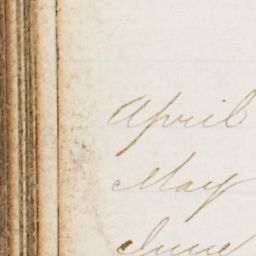 April
May
June